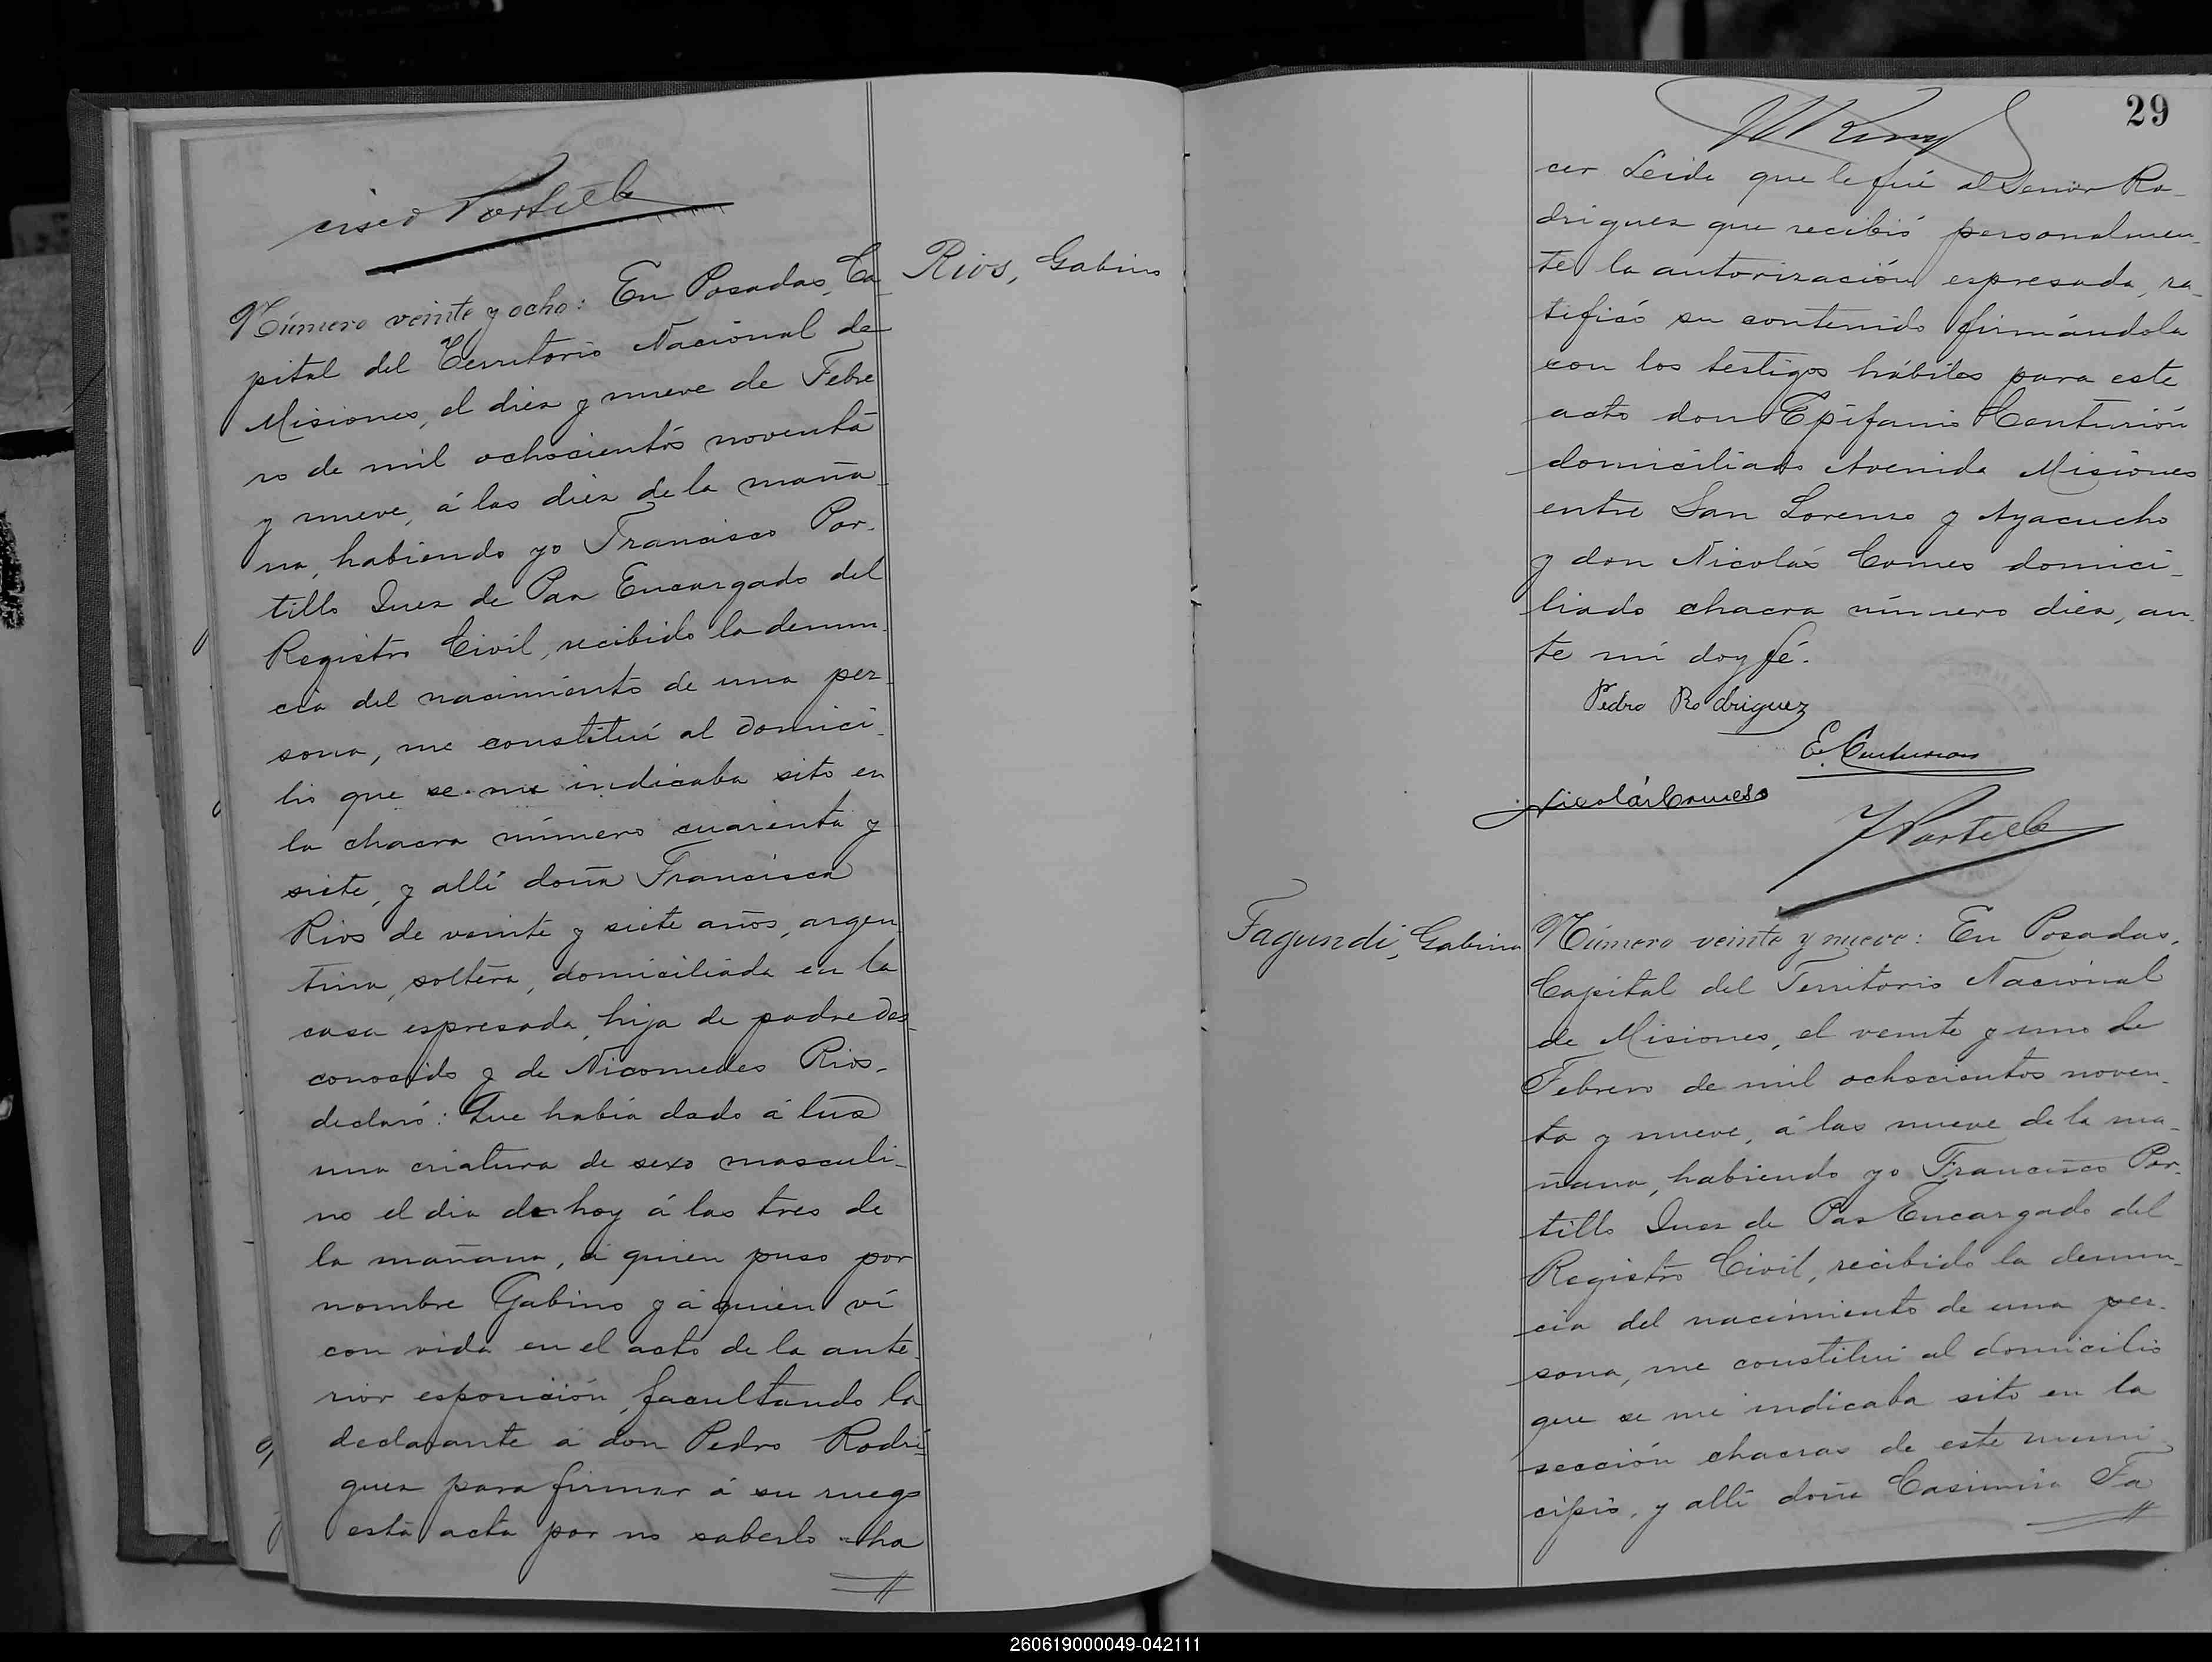 cisco Portillo
Rios, Gabino
Número veinte y ocho: En Posadas, Ca
pital del Territorio Nacional de
Misiones, el diez y nueve de Febre
ro de mil ochocientos noventa
y nueve, á las diez de la maña
na, habiendo yo Francisco Por-
tillo Juez de Paz Encargado del
Registro Civil, recibido la denun-
cia del nacimiento de una per-
sona, me constituí al domici-
lio que se me indicaba sito en
la chacra número cuarenta y
siete, y allí doña Francisca
Rios de veinte y siete años, argen
tina, soltera, domiciliada en la
casa espresada, hija de padre des-
conocido y de Nicomedes Rios,
declaró: Que había dado á luz
una criatura de sexo masculi-
no el dia de hoy á las tres de
la mañana, á quien puso por
nombre Gabino y á quien ví
con vida en el acto de la ante-
rior esposición, facultando la
declarante á don Pedro Rodri-
guez para firmar á su ruego
esta acta por no saberlo ha
29
cer Leida que le fué al Señor Ro-
driguez que recibió personalmen-
te la autorización espresada, ra-
tificó su contenido firmándola
con los testigos hábiles para este
acto don Epifanio Centurión
domiciliado Avenida Misiones
entre San Lorenzo y Ayacucho
y don Nicolás Comes domici-
liado chacra número diez, an-
te mí doy fé.
Pedro Rodriguez
E. Centurion
Nicolás Comes
F Portillo
Fagundi, Gabina
Número veinte y nueve: En Posadas,
Capital del Territorio Nacional
de Misiones, el veinte y uno de
Febrero de mil ochocientos noven-
ta y nueve, á las nueve de la ma-
ñana, habiendo yo Francisco Por-
tillo Juez de Paz Encargado del
Registro Civil, recibido la denun-
cia del nacimiento de una per-
sona, me constituí al domicilio
que se me indicaba sito en la
sección chacras de este muni-
cipio, y allí doña Casimira Fa
260619000049-042111